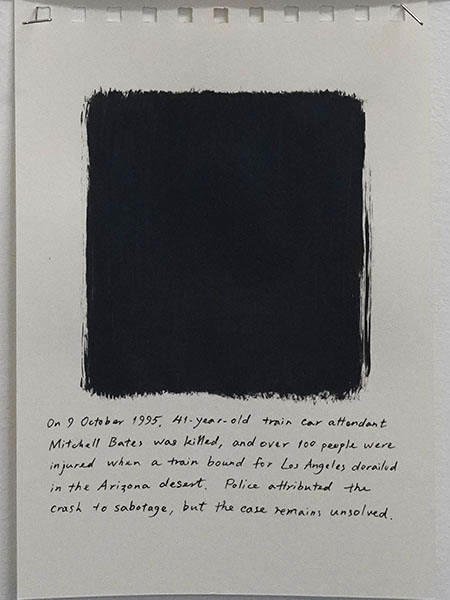 On 9 October 1995, 41-year-old train car attendant
Mitchell Bates was killed, and over 100 people were
injured when a train bound for Los Angeles derailed
in the Arizona desert. Police attributed the
crash to sabotage, but the case remains unsolved.